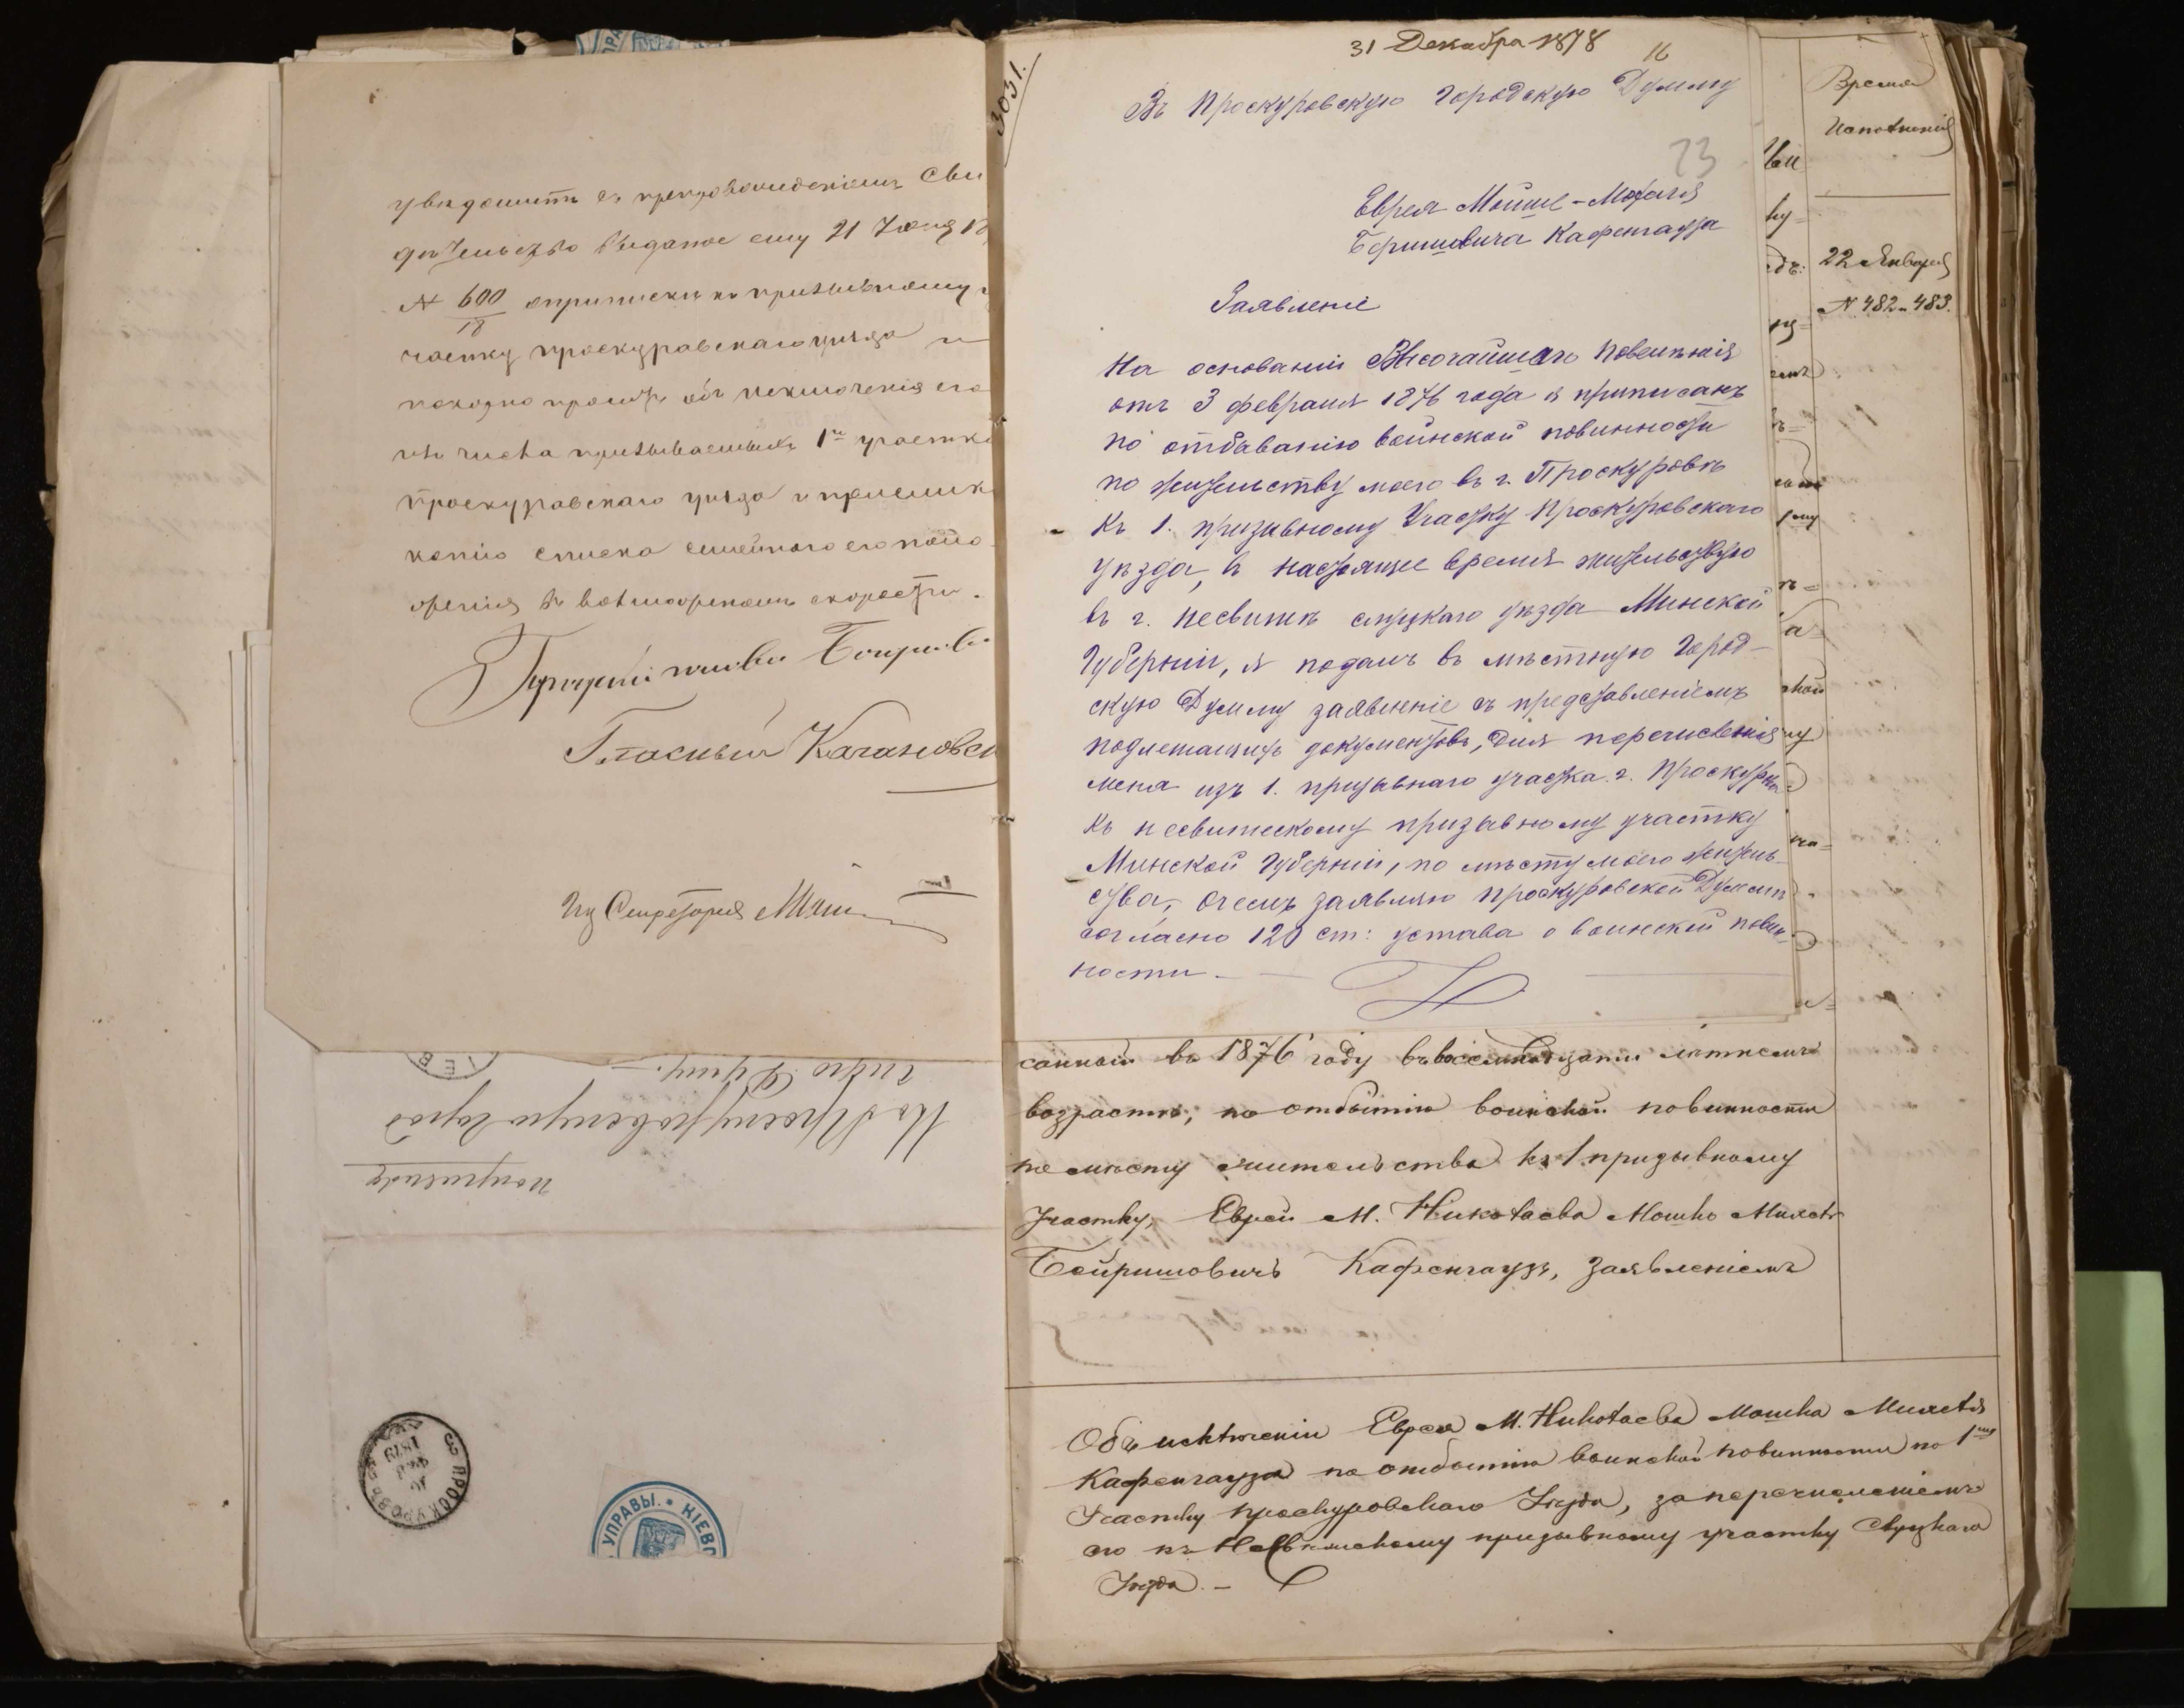 увѣдомить съ препровожденіемъ Сви
дѣтельство выданое ему 21 Іюня 18
№ 600/18 оприпискѣ къ призывному у
частку проскуровскаго уѣзда и
покорно проситъ объ исключенія его
изъ числа призываемыхъ 1го участка
проскуровскаго уѣзда и присылкѣ
копію списка семейнаго его поло
въ возможномъ скорости.
Гласный
Секретаря
ІЕВ
Проскуровскую Город
скую Думу.
ПРОСКУРОВЪ
1879
УПРАВЫ. • КІЕВС
3031.
31 Декабря 1878
16
Въ Проскуровскую Городскую Думму
23
Еврея Мойше-Мехаля
Беришовича Кафенгауза
Заявленіе
На основаніи Высочайшаго повелѣнія
отъ 3 февраля 1876 года я приписанъ
по отбыванію воинской повинности
по жительству моего въ г. Проскуровѣ
къ 1. призывному Участку Проскуровскаго
уѣзда, въ настоящее время жительствую
въ г. Несвижѣ слуцкаго уѣзда Минской
Губерніи, я подалъ въ мѣстную Город-
скую Думму заявленіе съ представленіемъ
подлежащихъ документовъ, для перечисленія
меня изъ 1. призывнаго участка г. Проскурова
къ несвижскому призывному участку
Минской Губерніи, по мѣсту моего житель-
ства, очемъ заявляю Проскуровской Думмѣ
согласно 120 ст: устава о воинской повин-
ности
Время
Исполненія
22 Января
№ 482 и 483.
санный въ 1876 году въ восемнадцати лѣтнемъ
возрастѣ, по отбытію воинской повинности
по мѣсту жительства къ 1 призывному
Участку, Еврей М. Николаева Мошко Михель
Бейришовичъ Кафенгаузъ, Заявленіемъ
Объ исключеніи Еврея М. Николаева Мошка Михеля
Кафенгауза по отбытію воинской повинности по 1му
Участку Проскуровскаго Уѣзда, за перечисленіемъ
его къ Несвижскому призывному участку Слуцкаго
Уѣзда. -